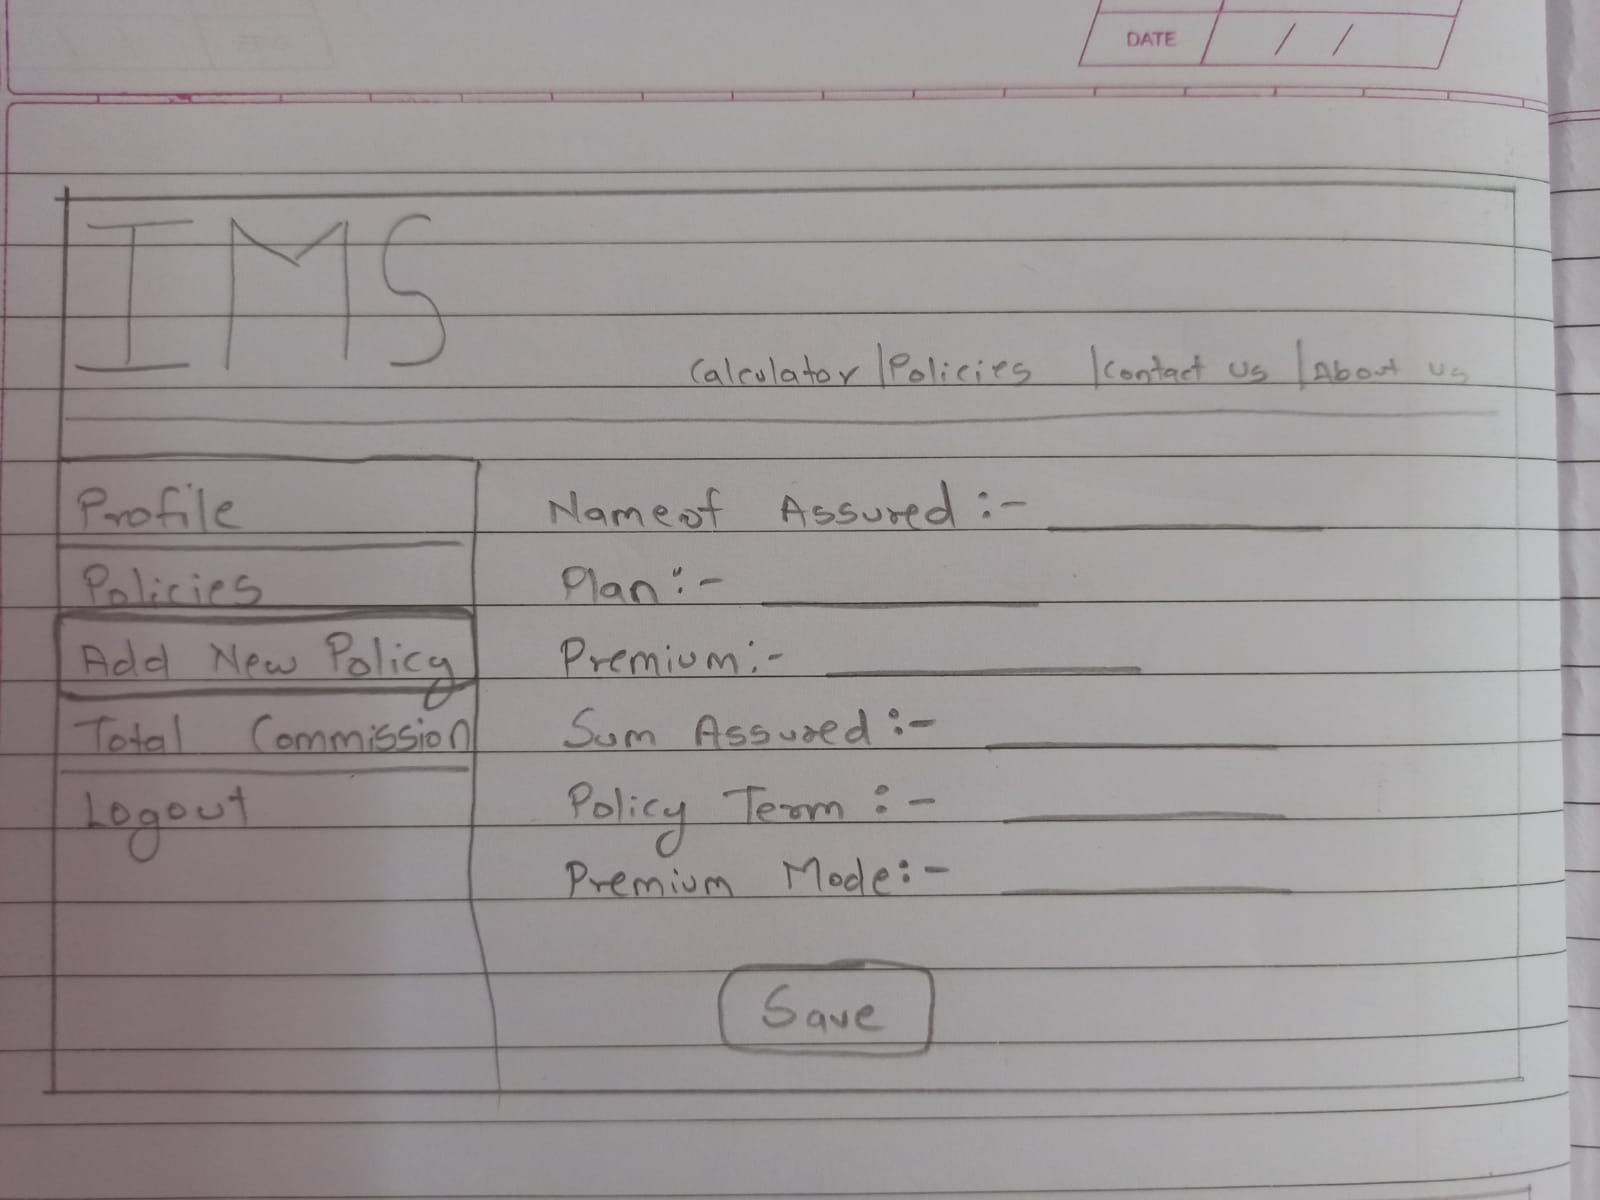 DATE / /
IMS
Calculator |Policies |Contact us |About us
Profile
Policies
Add New Policy
Total Commission
Logout
Name of Assured :-
Plan :-
Premium :-
Sum Assured :-
Policy Term :-
Premium Mode :-
Save